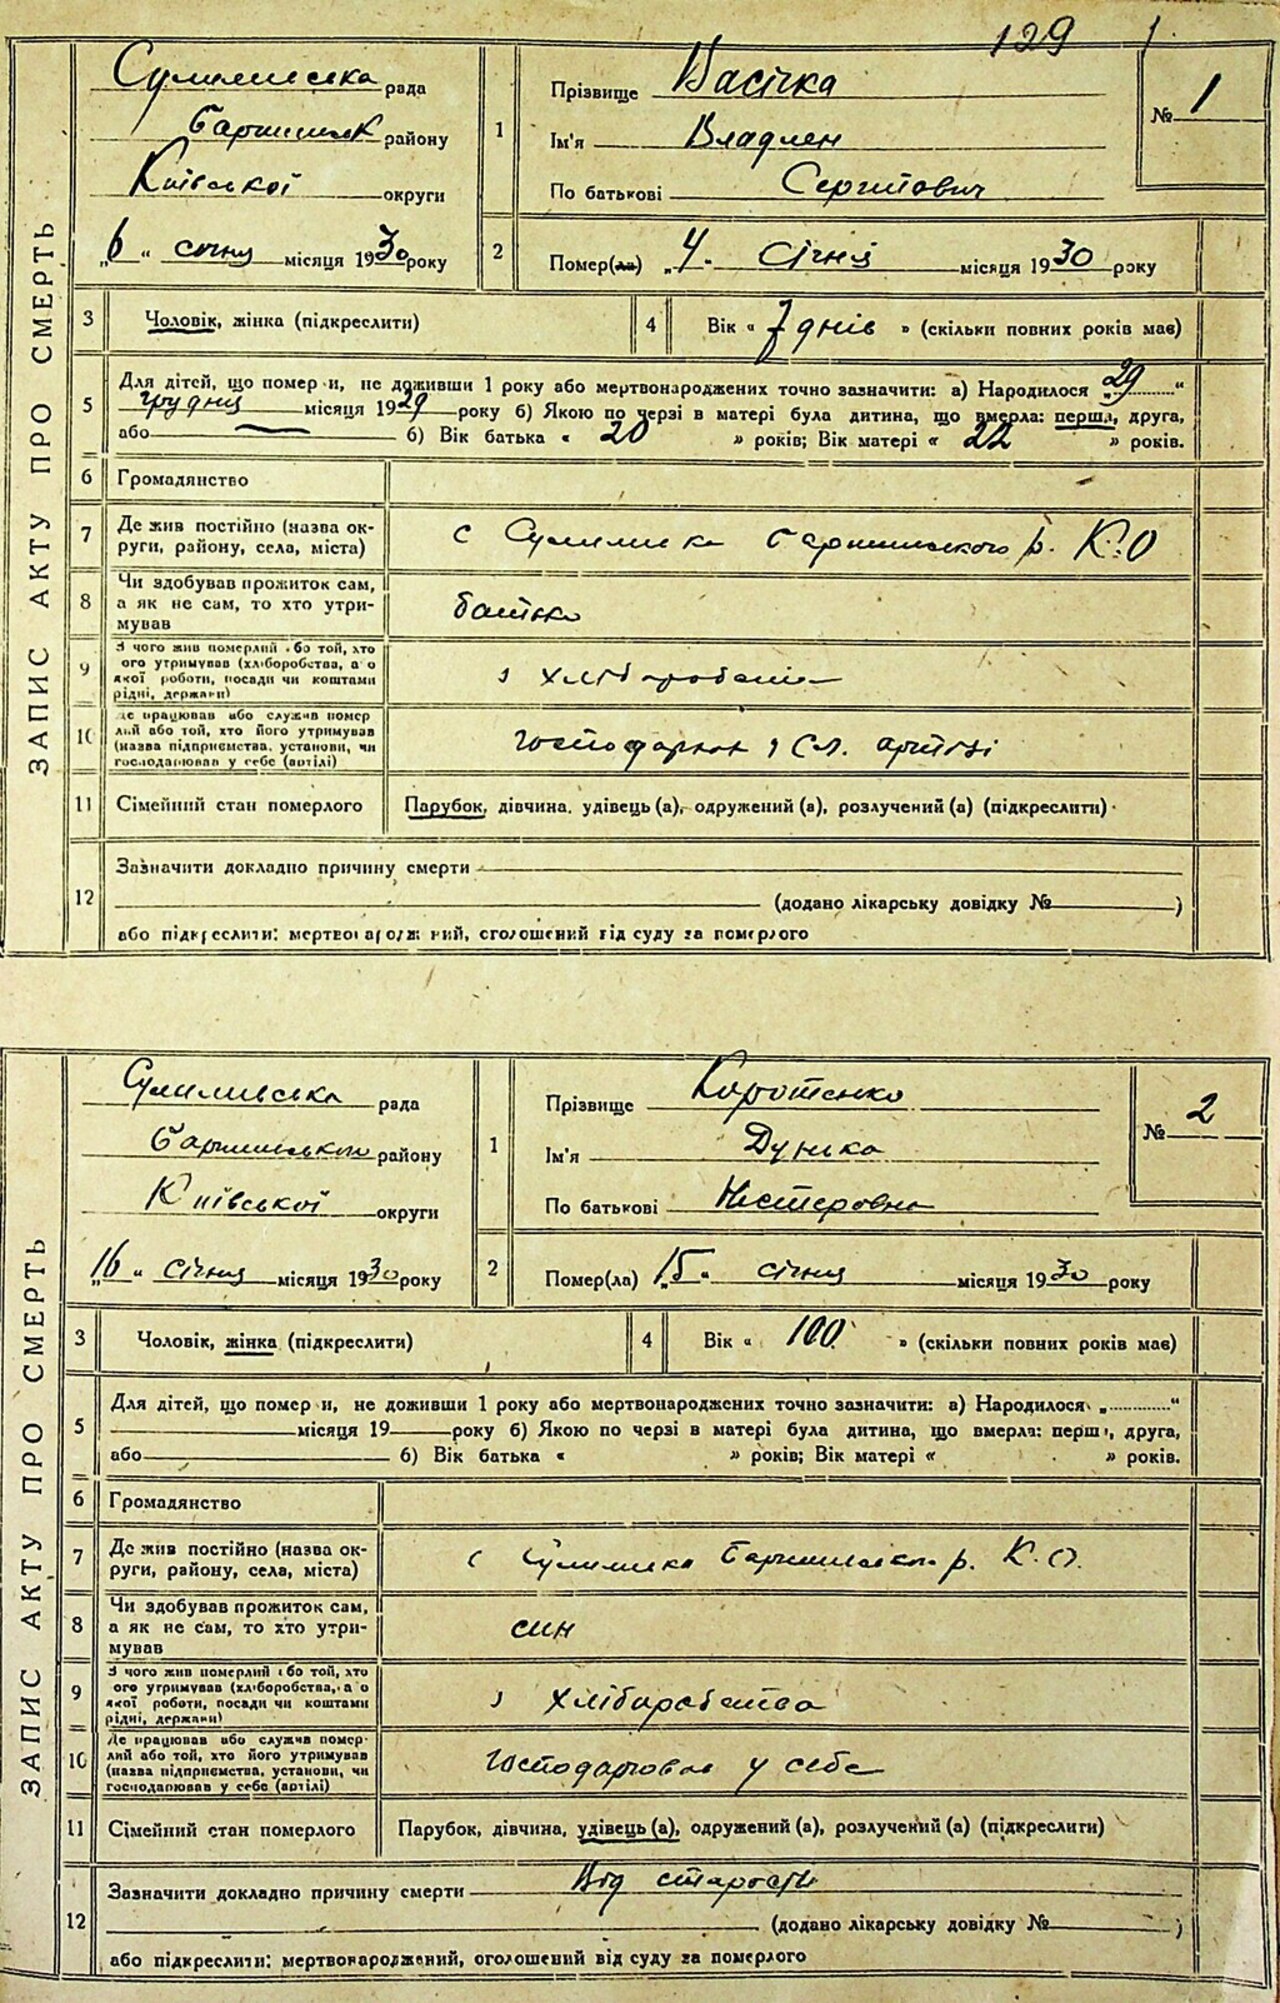 129
ЗАПИС АКТУ ПРО СМЕРТЬ
Сулимівська рада
району
Київської округи
„6“ січня місяця 1930 року
1
Прізвище Васічка
Ім'я Владлен
По батькові Сергійович
№ 1
2
Помер(ла) „4“ Січня місяця 1930 року
3
Чоловік, жінка (підкреслити)
4
Вік « 7 днів » (скільки повних років має)
5
Для дітей, що помер и, не доживши 1 року або мертвонароджених точно зазначити: а) Народилося „29“
грудня місяця 1929 року б) Якою по черзі в матері була дитина, що вмерла: перша, друга,
або б) Вік батька « 20 » років; Вік матері « 22 » років.
6
Громадянство
7
Де жив постійно (назва ок-
руги, району, села, міста)
с Сулимівка р. К.О
8
Чи здобував прожиток сам,
а як не сам, то хто утри-
мував
батько
9
З чого жив померлий або той, хто
ого утримував (хліборобства, а о
якої роботи, посади чи коштами
рідні, держави)
з
10
Де працював або служив помер
лий або той, хто його утримував
(назва підприємства, установи, чи
господарював у себе (артілі)
артілі
11
Сімейний стан померлого
Парубок, дівчина, удівець (а), одружений (а), розлучений (а) (підкреслити)
12
Зазначити докладно причину смерти
(додано лікарську довідку № )
або підкреслити: мертвонароджений, оголошений від суду за померлого
ЗАПИС АКТУ ПРО СМЕРТЬ
Сулимівська рада
району
Київської округи
„16“ січня місяця 1930 року
1
Прізвище Коротенко
Ім'я Дунька
По батькові Нестеровна
№ 2
2
Помер(ла) „15“ січня місяця 1930 року
3
Чоловік, жінка (підкреслити)
4
Вік « 100 » (скільки повних років має)
5
Для дітей, що помер и, не доживши 1 року або мертвонароджених точно зазначити: а) Народилося „ “
місяця 19 року б) Якою по черзі в матері була дитина, що вмерла: перша, друга,
або б) Вік батька « » років; Вік матері « » років.
6
Громадянство
7
Де жив постійно (назва ок-
руги, району, села, міста)
с Сулимівка р. К.О.
8
Чи здобував прожиток сам,
а як не сам, то хто утри-
мував
син
9
З чого жив померлий або той, хто
ого утримував (хліборобства, а о
якої роботи, посади чи коштами
рідні, держави)
з хліборобства
10
Де працював або служив помер-
лий або той, хто його утримував
(назва підприємства, установи, чи
господарював у себе (артілі)
господарював у себе
11
Сімейний стан померлого
Парубок, дівчина, удівець (а), одружений (а), розлучений (а) (підкреслити)
12
Зазначити докладно причину смерти Від старости
(додано лікарську довідку № )
або підкреслити: мертвонароджений, оголошений від суду за померлого